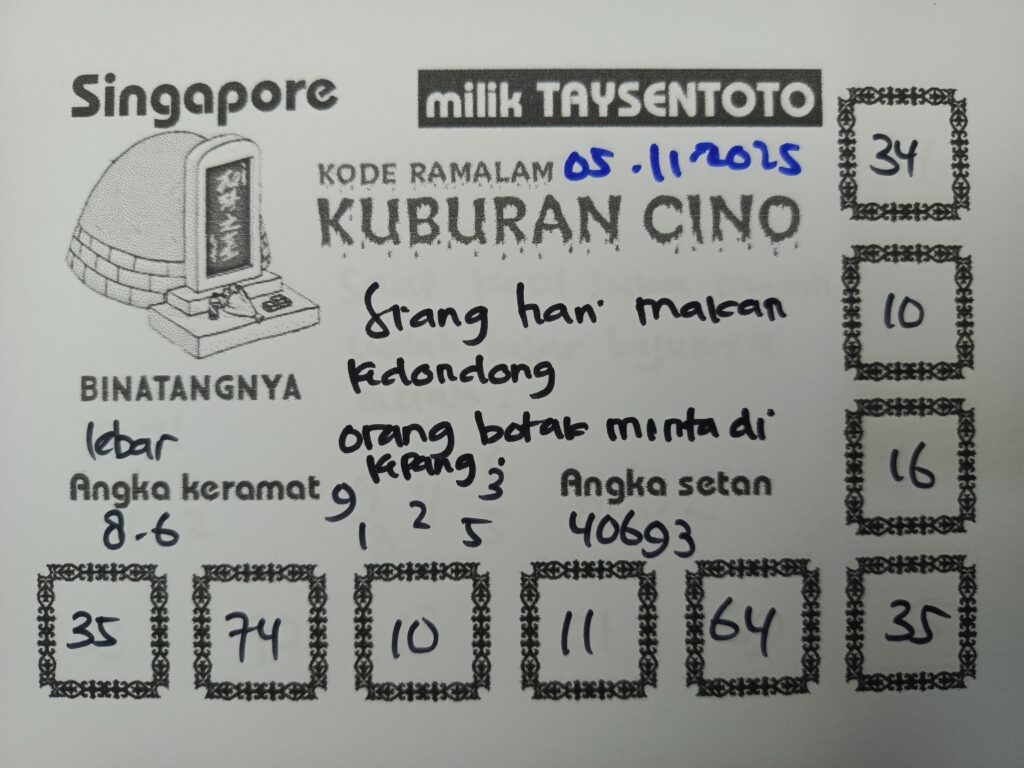 Singapore
milik TAYSENTOTO
KODE RAMALAM 05.11.2025
KUBURAN CINO
Srang hari makan
kedondong
orang botak minta di
kepang.
BINATANGNYA
lebar
Angka keramat
8-6
9 3
1 2 5
Angka setan
40693
34
10
16
35 74 10 11 64 35